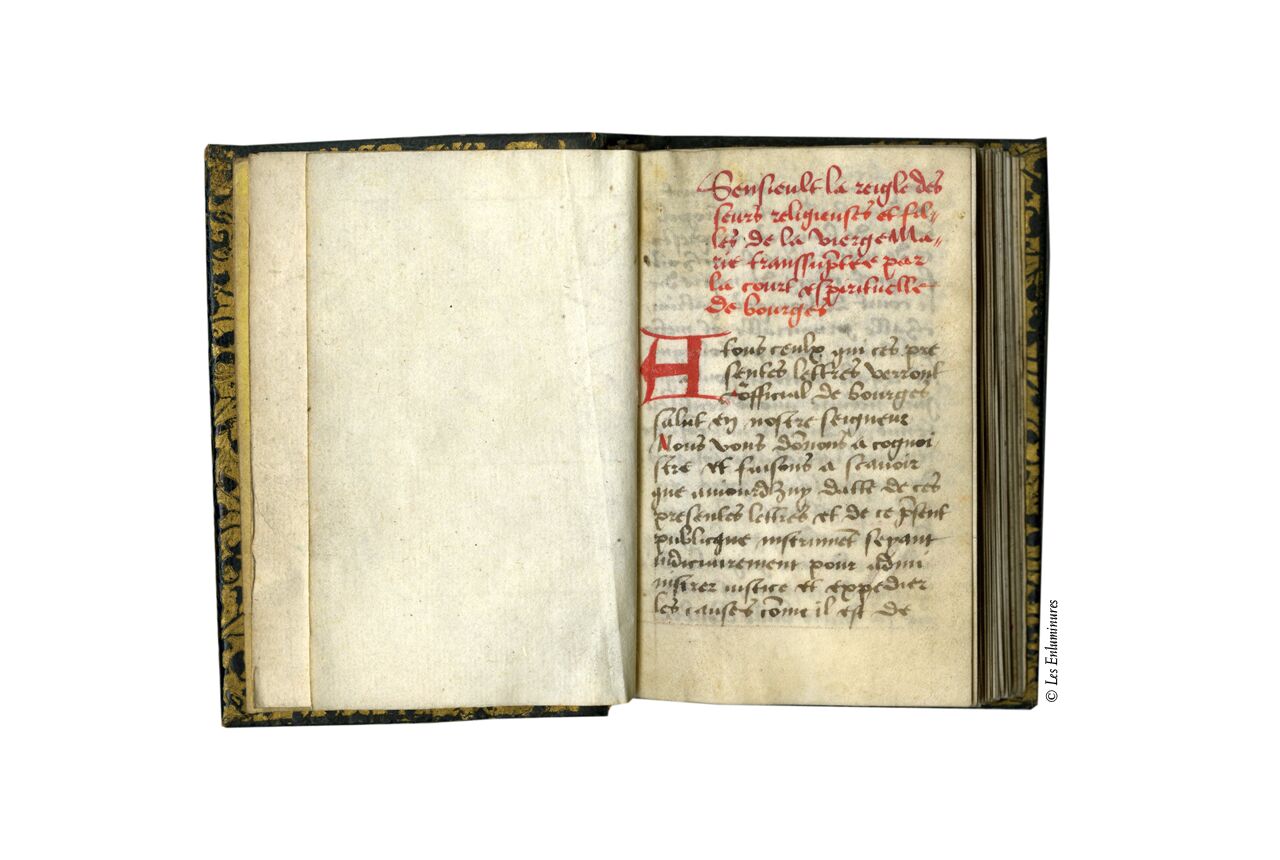 Sensieult la reigle des
seurs religieuses et fil-
les de la vierge Ma-
rie transsuptee par
la court espirituelle
de bourges
A tous ceulx qui ces pre
sentes lettres verront
l'official de bourges
salut en nostre seigneur
Nous vous donons a cognoi
stre et faisons a scavoir
que aujourdhuy datte de ces
presentes lettres et de ce psent
publicque instrument seyant
judiciairement pour admi
nistrer justice et expedier
les causes come il est de
© Les Enluminures